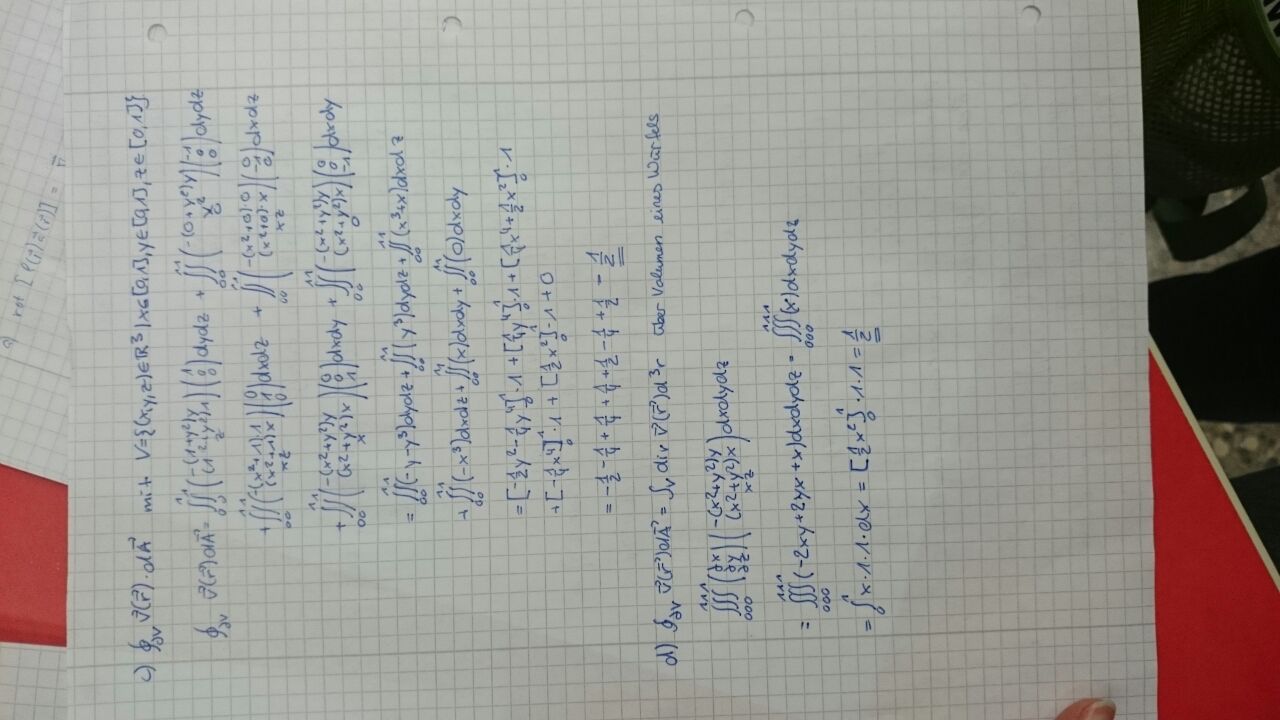 rot [φ(r⃗)a⃗(r⃗)] =
c) ∮∂V v⃗(r⃗)·dA⃗ mit V={(x,y,z)∈ℝ³|x∈[0,1],y∈[0,1],z∈[0,1]}
∮∂V v⃗(r⃗)dA⃗ = ∫₀¹∫₀¹ (-(1²+y²)y, (1²+y²)1, z)(1, 0, 0)dydz + ∫₀¹∫₀¹ (-(0+y²)y, y², 0)(-1, 0, 0)dydz
+ ∫₀¹∫₀¹ (-(x²+1)1, (x²+1)x, xz)(0, 1, 0)dxdz + ∫₀¹∫₀¹ (-(x²+0)0, (x²+0)·x, xz)(0, -1, 0)dxdz
+ ∫₀¹∫₀¹ (-(x²+y²)y, (x²+y²)x, x)(0, 0, 1)dxdy + ∫₀¹∫₀¹ (-(x²+y²)y, (x²+y²)x, 0)(0, 0, -1)dxdy
= ∫₀¹∫₀¹(-y-y³)dydz + ∫₀¹∫₀¹(y³)dydz + ∫₀¹∫₀¹(x³+x)dxdz
+ ∫₀¹∫₀¹(-x³)dxdz + ∫₀¹∫₀¹(x)dxdy + ∫₀¹∫₀¹(0)dxdy
= [-½y²-¼y⁴]₀¹·1 + [¼y⁴]₀¹·1 + [¼x⁴+½x²]₀¹·1
+ [-¼x⁴]₀¹·1 + [½x²]₀¹·1 + 0
= -½ - ¼ + ¼ + ¼ + ½ - ¼ + ½ = ½
d) ∮∂V v⃗(r⃗)dA⃗ = ∫V div v⃗(r⃗)d³r über Volumen eines Würfels
∫₀¹∫₀¹∫₀¹ (∂x, ∂y, ∂z)(-(x²+y²)y, (x²+y²)x, xz)dxdydz
= ∫₀¹∫₀¹∫₀¹(-2xy+2yx+x)dxdydz = ∫₀¹∫₀¹∫₀¹(x)dxdydz
= ∫₀¹x·1·1·dx = [½x²]₀¹·1·1 = ½